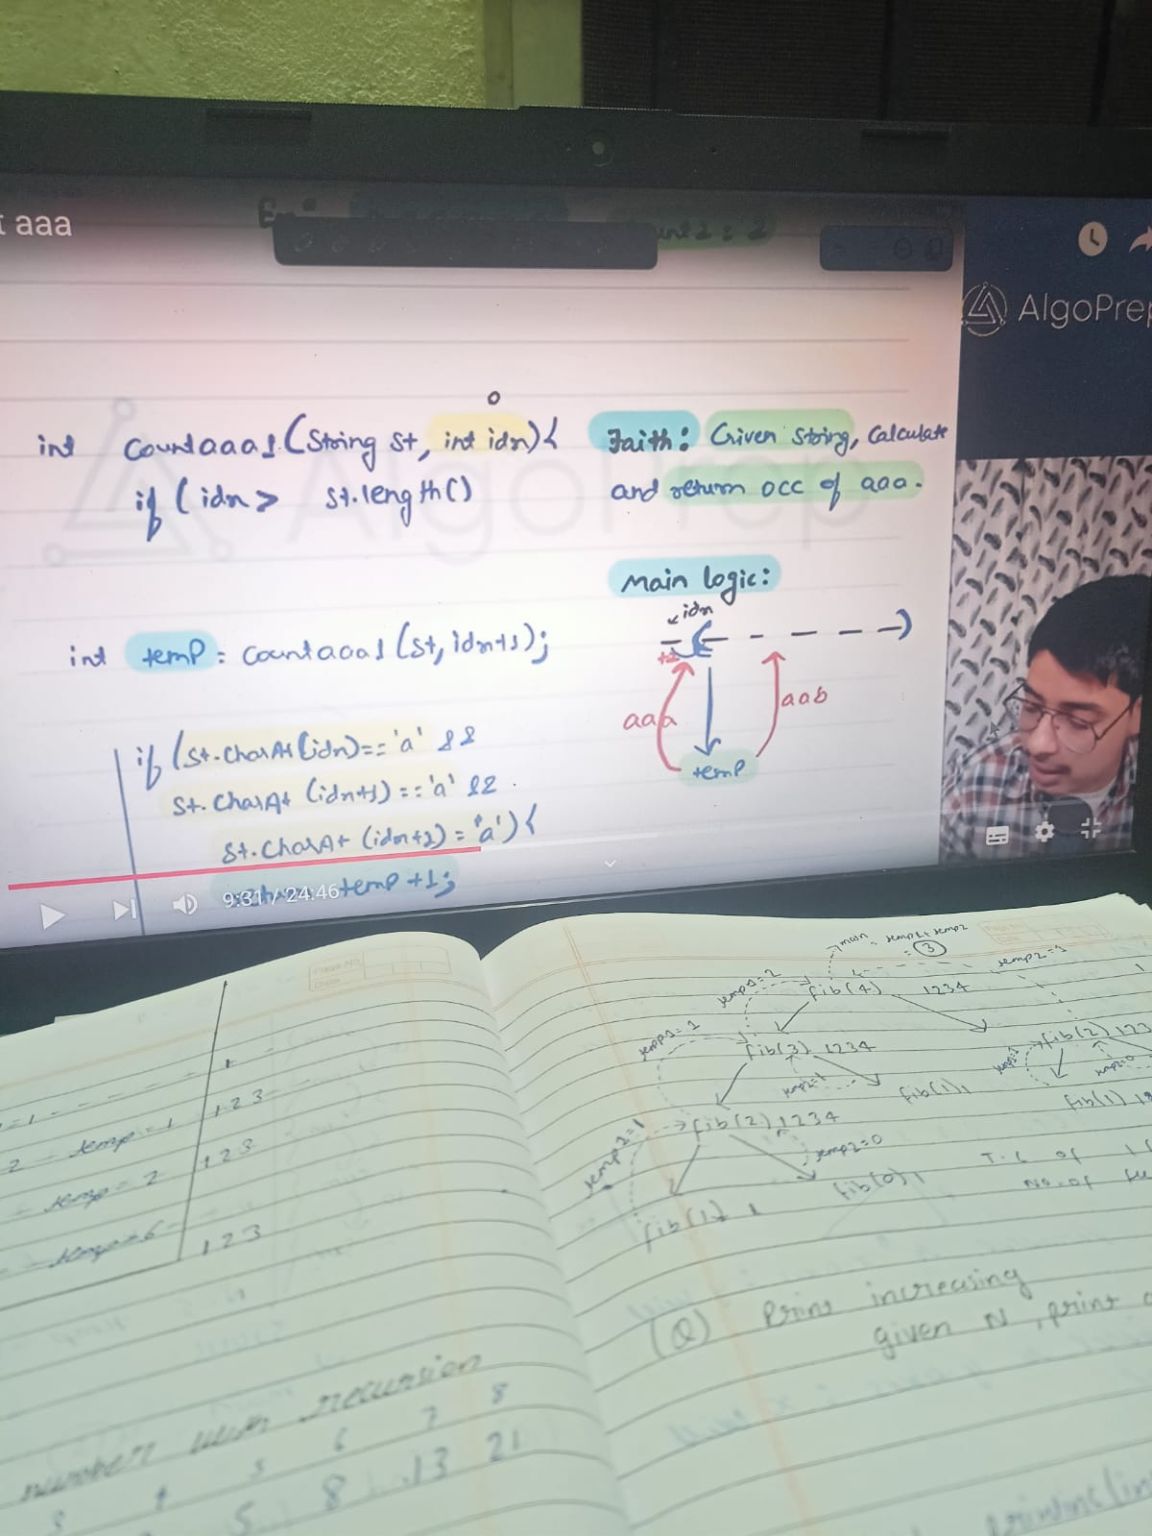 t aaa
AlgoPrep
int countaaa1(String st, int idx){
0
if (idx > st.length()
Faith: Given string, calculate
and return occ of aaa.
Main logic:
idx
int temp = countaaa1(st, idx+1);
aaa
aab
temp
if (st.charAt(idx)=='a' &&
st.charAt (idx+1)=='a' &&
st.charAt (idx+2)='a'){
temp+1;
9:31 / 24:46
main
temp1+temp2
= 3
temp1=2
temp2=1
fib(4) 1234
temp1=1
fib(3) 1234
fib(2) 123
temp2=1
fib(1) 1
fib(1)
temp2=1
fib(2) 1234
temp2=0
fib(1) 1
fib(0) 1
T.C of
No. of
=1
2 temp=1 123
temp=2 123
temp=6 123
(Q) Print increasing
given N, print
number with recursion
3 4 5 6 7 8
5 8 13 21